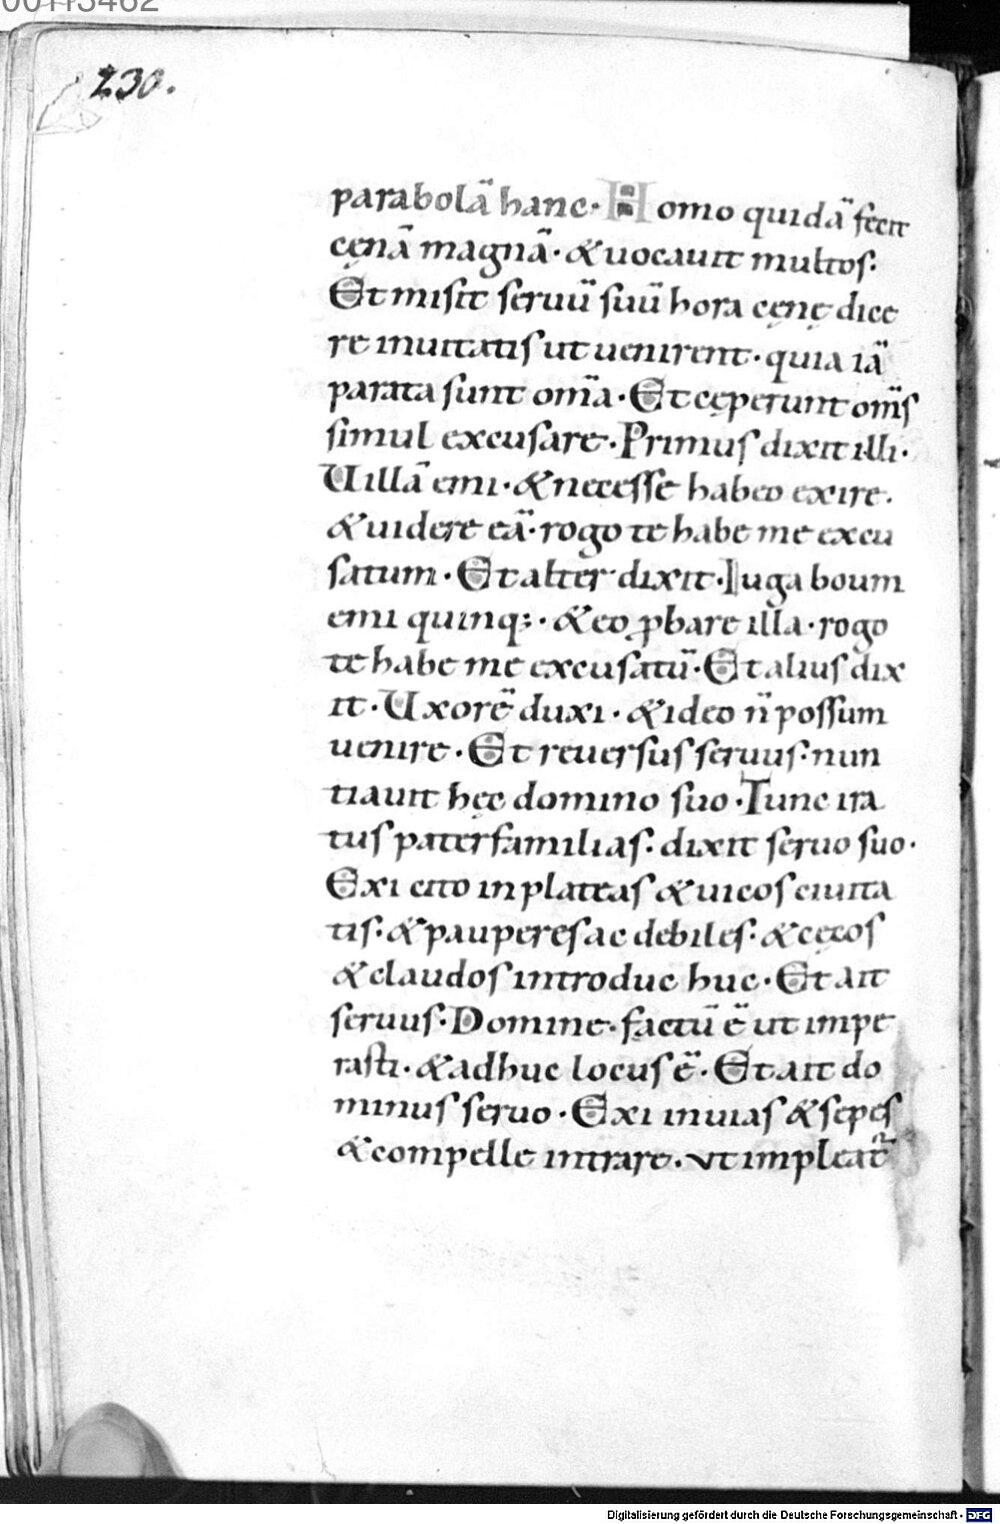 00113462
230.
parabolā hanc· Homo quidā fecit
cęnā magnā· & uocauit multos·
Et misit seruū suū hora cęnę dice
re inuitatis ut uenirent· quia iā
parata sunt om̄a· Et cęperunt om̄s
simul excusare· Primus dixit illi·
Uillā emi· & necesse habeo exire·
& uidere eā· rogo te habe me excu
satum· Et alter dixit· Iuga boum
emi quinq;· & eo ꝓbare illa· rogo
te habe me excusatū· Et alius dix
it· Uxorē duxi· & ideo n̄ possum
uenire· Et reuersus seruus· nun
tiauit hęc domino suo· Tunc ira
tus paterfamilias· dixit seruo suo·
Exi cito in plateas & uicos ciuita
tis· & pauperes ac debiles· & cęcos
& claudos introduc huc· Et ait
seruus· Domine· factū ē ut impe
rasti· & adhuc locus ē· Et ait do
minus seruo· Exi in uias & sepes
& compelle intrare· ut impleat᷑
Digitalisierung gefördert durch die Deutsche Forschungsgemeinschaft - DFG